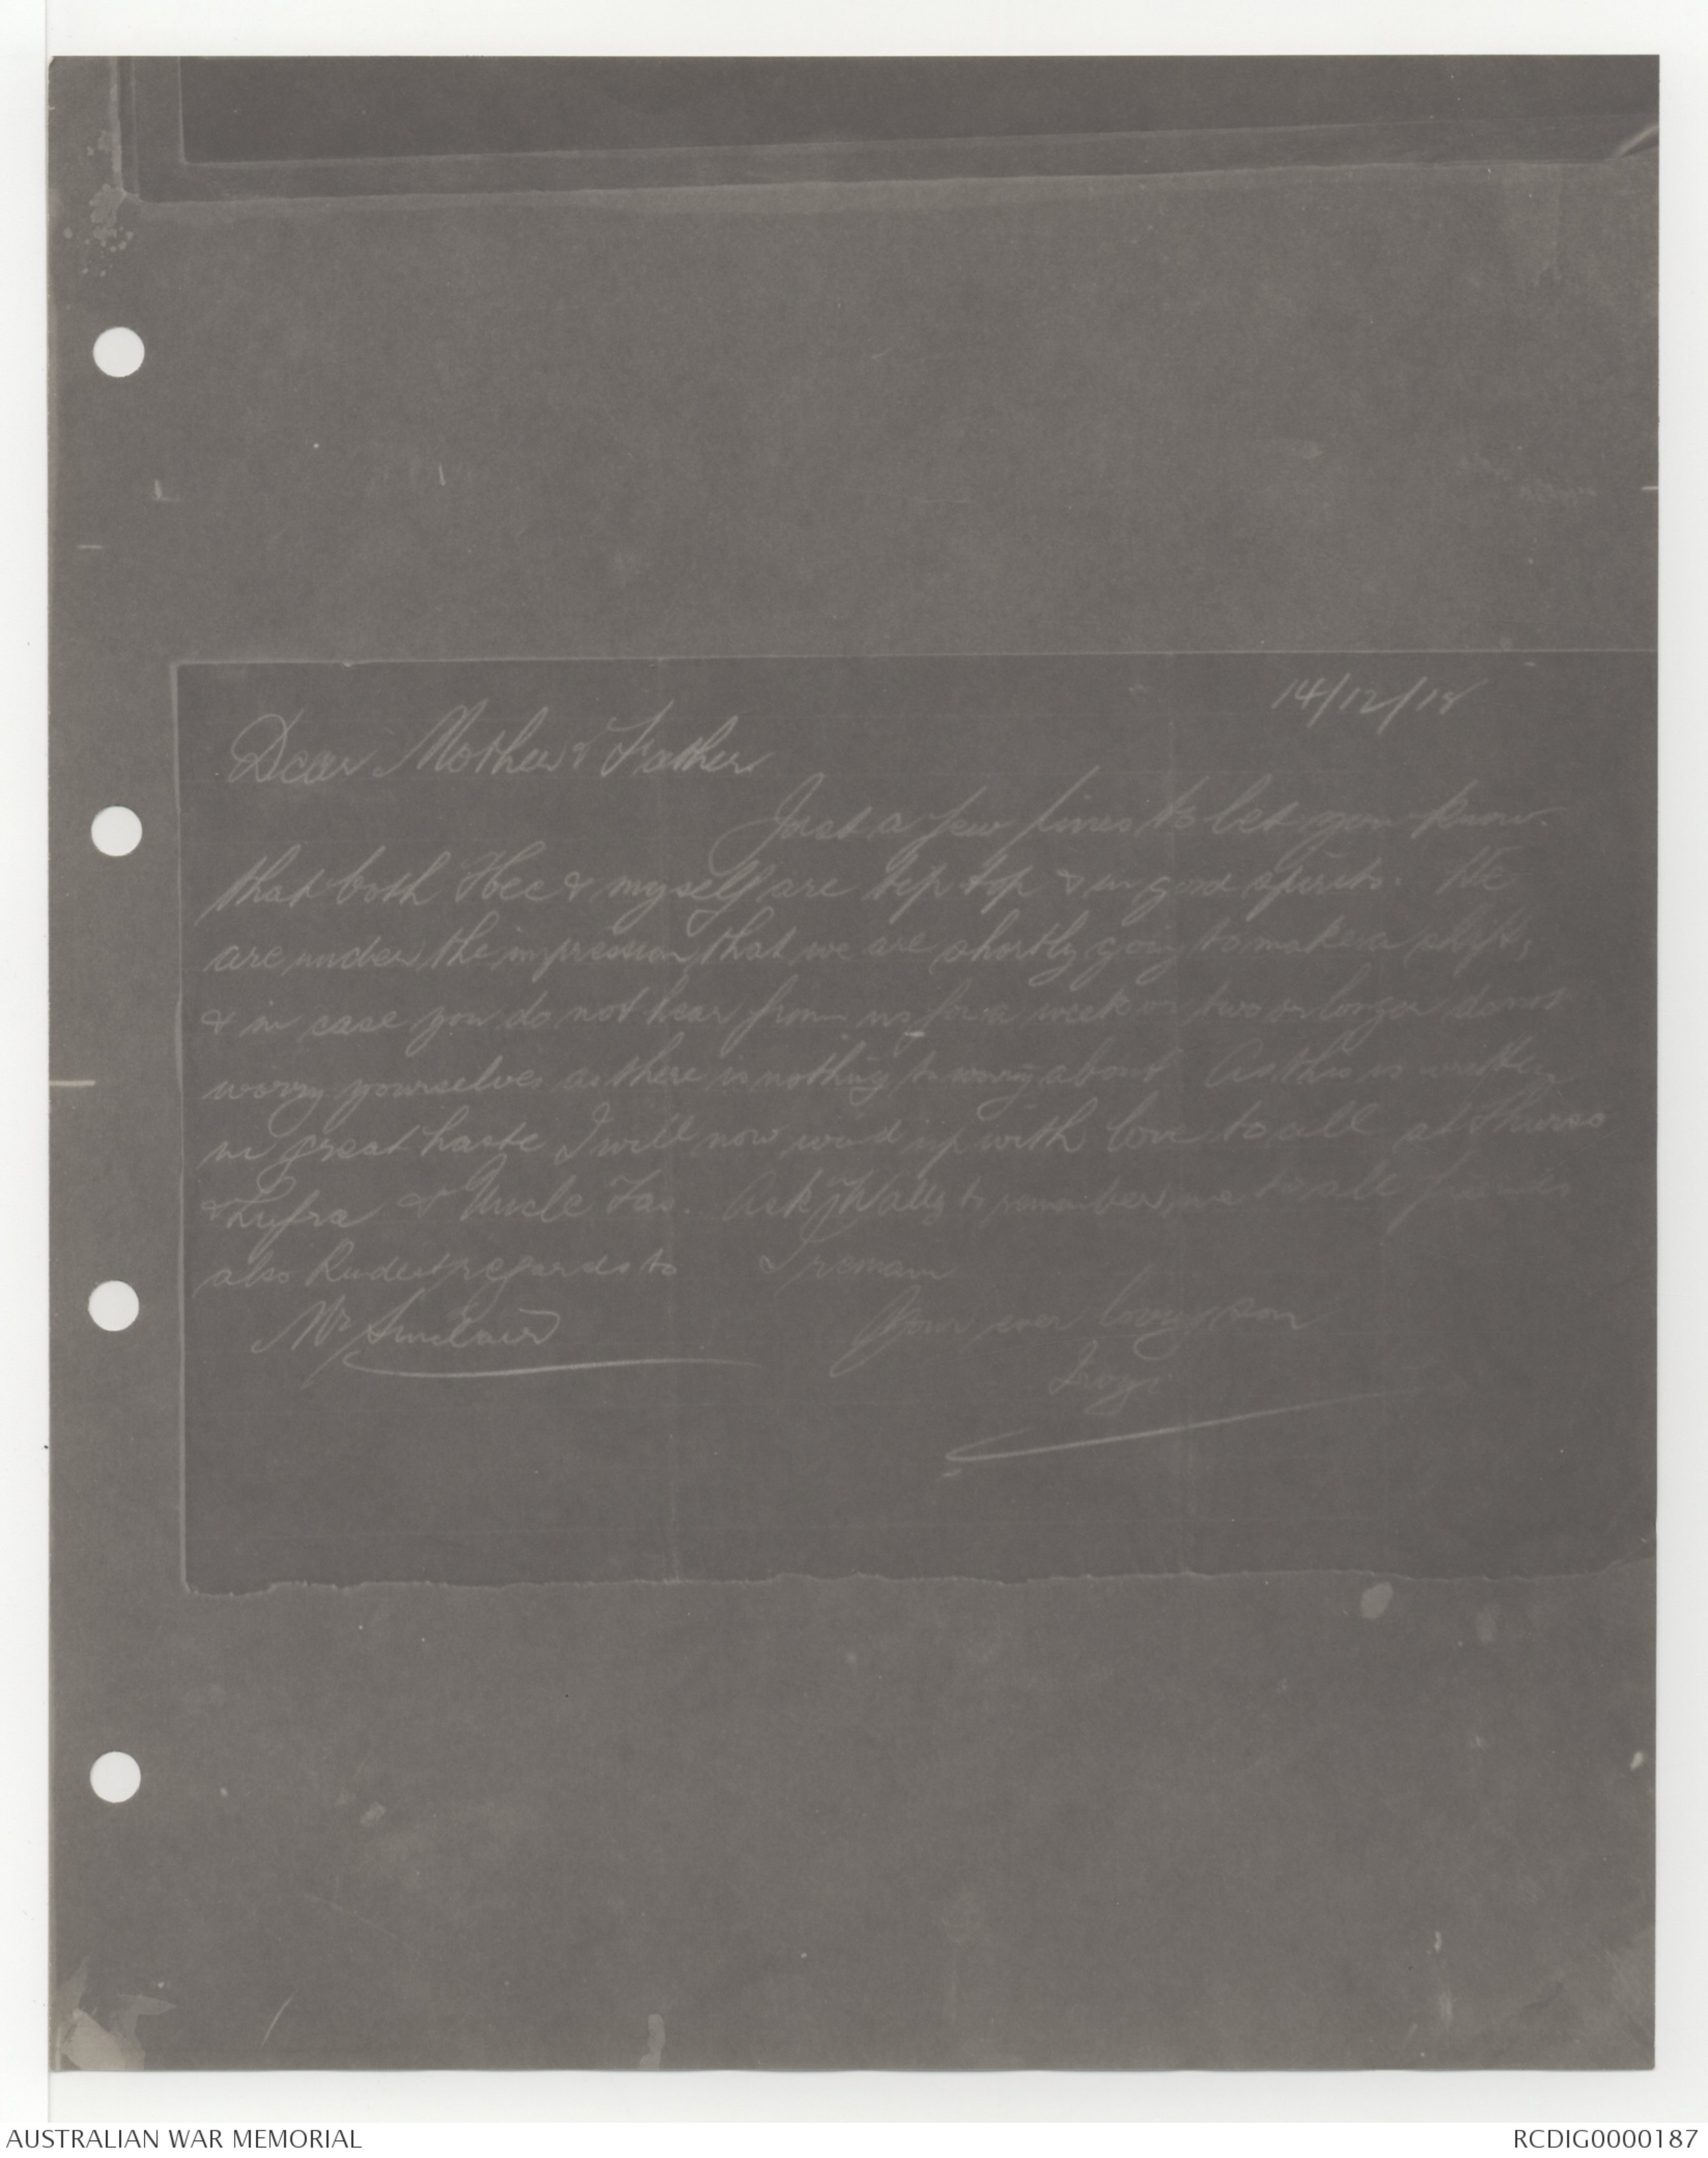 14/12/18
Dear Mother & Father
Just a few lines to let you know
that both Hec & myself are tip top & in good spirits. We
are under the impression that we are shortly going to make a shift,
& in case you do not hear from us for a week or two or longer do not
worry yourselves as there is nothing to worry about. As this is written
in great haste I will now wind up with love to all at Thurso
& Lufra & Uncle Jas. Ask Wally to remember me to all friends
also Kindest regards to I remain
Mr Sinclair Your ever loving son
AUSTRALIAN WAR MEMORIAL
RCDIG0000187